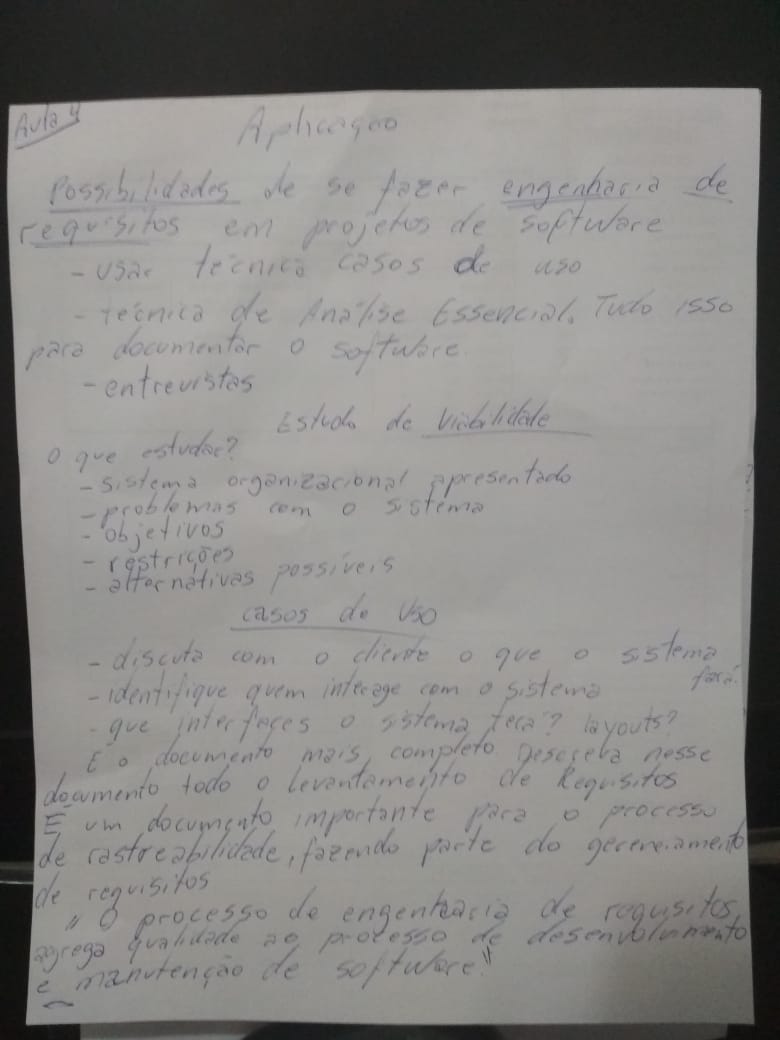 Aula 4
Aplicação
Possibilidades de se fazer engenharia de
requisitos em projetos de software
- usar técnica casos de uso
- técnica de Análise Essencial. Tudo isso
para documentar o software.
- entrevistas
Estudo de Viabilidade
O que estudar?
- sistema organizacional apresentado
- problemas com o sistema
- objetivos
- restrições
- alternátivas possíveis
casos de Uso
- discuta com o cliente o que o sistema
fará.
- identifique quem interage com o sistema
- que interfaces o sistema terá? layouts?
É o documento mais completo. Descreva nesse
documento todo o Levantamento de Requisitos
É um documento importante para o processo
de rastreabilidade, fazendo parte do gerenciamento
de requisitos
" O processo de engenharia de requisitos
agrega qualidade ao processo de desenvolvimento
e manutenção de software."